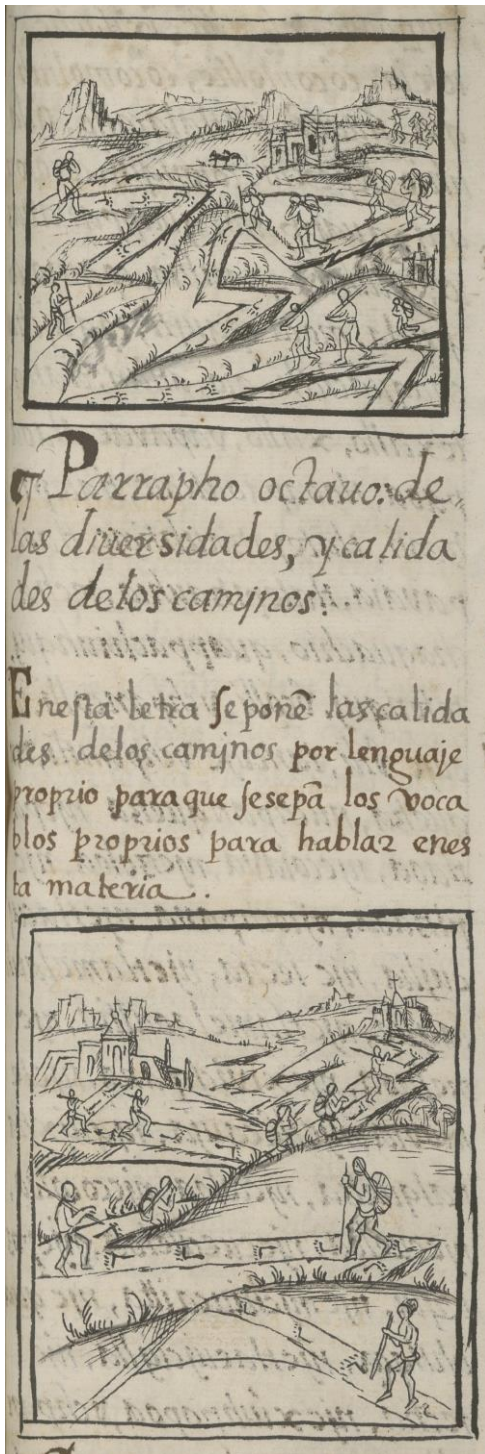 ¶ Parrapho octauo: de
las diuersidades, y calida
des de los camjnos.
En esta letra se ponẽ las calida
des de los camjnos por lenguaje
proprio para que se sepã los voca
blos proprios para hablar en es
ta materia.